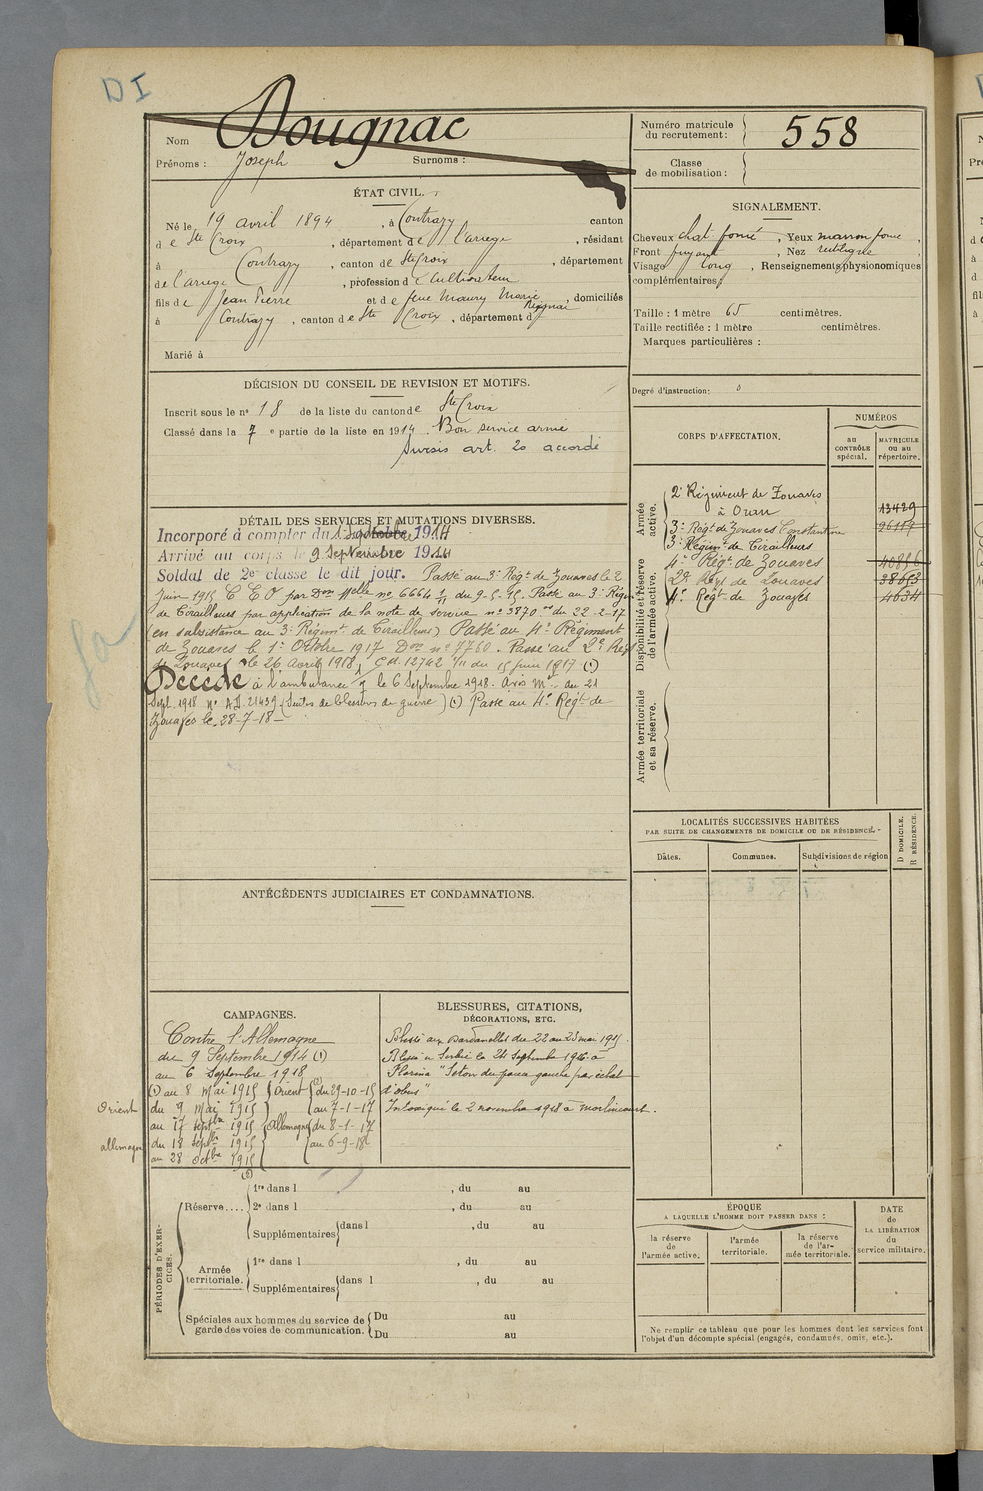 DI
Nom Dougnac
Prénoms : Joseph Surnoms :
Numéro matricule du recrutement : 558
Classe de mobilisation :
ÉTAT CIVIL.
Né le 19 avril 1894, à Contrazy canton
de Ste Croix, département de l'ariège, résidant
à Contrazy, canton de Ste Croix, département
de l'ariege, profession de Cultivateur
fils de Jean Pierre et de feue Maury Marie, domiciliés
à Contrazy, canton de Ste Croix, département d
Marié à
SIGNALEMENT.
Cheveux chat. foncé, Yeux marron foncé,
Front fuyant, Nez rectiligne
Visage long, Renseignements physionomiques
complémentaires :
Taille : 1 mètre 65 centimètres.
Taille rectifiée : 1 mètre centimètres.
Marques particulières :
Degré d'instruction :
DÉCISION DU CONSEIL DE REVISION ET MOTIFS.
Inscrit sous le n° 18 de la liste du canton de Ste Croix
Classé dans la 7e partie de la liste en 1914. Bon service armé
Sursis art. 20 accordé
DÉTAIL DES SERVICES ET MUTATIONS DIVERSES.
Incorporé à compter du 1914
Arrivé au corps le 9 Septembre 1914
Soldat de 2e classe le dit jour. Passé au 3e Régt de Zouaves le 2
Juin 1915 C E O par Don Melle no 6664 1/11 du 9-5-15. Passé au 3e Régim
de Tirailleurs par application de la note de service no 3870 du 22-2-17
(en subsistance au 3e Régimt de Tirailleurs) Passé au 4e Régiment
de Zouaves le 1er Octobre 1917 Don no 7760. Passé au 2e Régt
de Zouaves le 26 Avril 1918, C M. 12742 1/11 du 15 juin 1917 (1)
Décédé à l'ambulance le 6 Septembre 1918. Avis Mel du 21
Sept. 1918 No A.D. 21439 (Suites de blessures de guerre) (1) Passé au 4e Régt de
Zouaves le 28-7-18
CORPS D'AFFECTATION.
NUMÉROS
au CONTRÔLE spécial.
MATRICULE ou au répertoire.
Armée active.
2e Régiment de Zouaves
à Oran 13429
3e Régt de Zouaves Constantine 26117
3e Régimt de Tirailleurs
Disponibilité et réserve de l'armée active.
4e Régt de Zouaves
2e Régt de Zouaves 38653
4e Régt de Zouaves 4634
Armée territoriale et sa réserve.
LOCALITÉS SUCCESSIVES HABITÉES
PAR SUITE DE CHANGEMENTS DE DOMICILE OU DE RÉSIDENCE.
Dates.
Communes.
Subdivisions de région
D DOMICILE.
R RÉSIDENCE.
ANTÉCÉDENTS JUDICIAIRES ET CONDAMNATIONS.
CAMPAGNES.
Contre l'Allemagne
du 9 Septembre 1914 (1)
au 6 Septembre 1918
(1) au 8 Mai 1915 Orient du 29-10-15
Orient du 9 Mai 1915 au 7-1-17
au 17 septbre 1915 Allemagne du 8-1-17
allemagne du 18 septbre 1915 au 6-9-18
au 28 octbre 1915
BLESSURES, CITATIONS,
DÉCORATIONS, ETC.
Blessé aux Dardanelles du 22 au 23 mai 1915.
Blessé en Serbie le 24 Septembre 1916 à
Florina "Seton du genou gauche par éclat
d'obus"
Intoxiqué le 2 novembre
PÉRIODES D'EXERCICES.
Réserve....
1re dans l , du au
2e dans l , du au
Supplémentaires dans l , du au
Armée territoriale.
1re dans l , du au
Supplémentaires dans l , du au
Spéciales aux hommes du service de garde des voies de communication.
Du au
Du au
ÉPOQUE
A LAQUELLE L'HOMME DOIT PASSER DANS :
la réserve de l'armée active.
l'armée territoriale.
la réserve de l'armée territoriale.
DATE de LA LIBÉRATION du service militaire.
Ne remplir ce tableau que pour les hommes dont les services font
l'objet d'un décompte spécial (engagés, condamnés, omis, etc.).